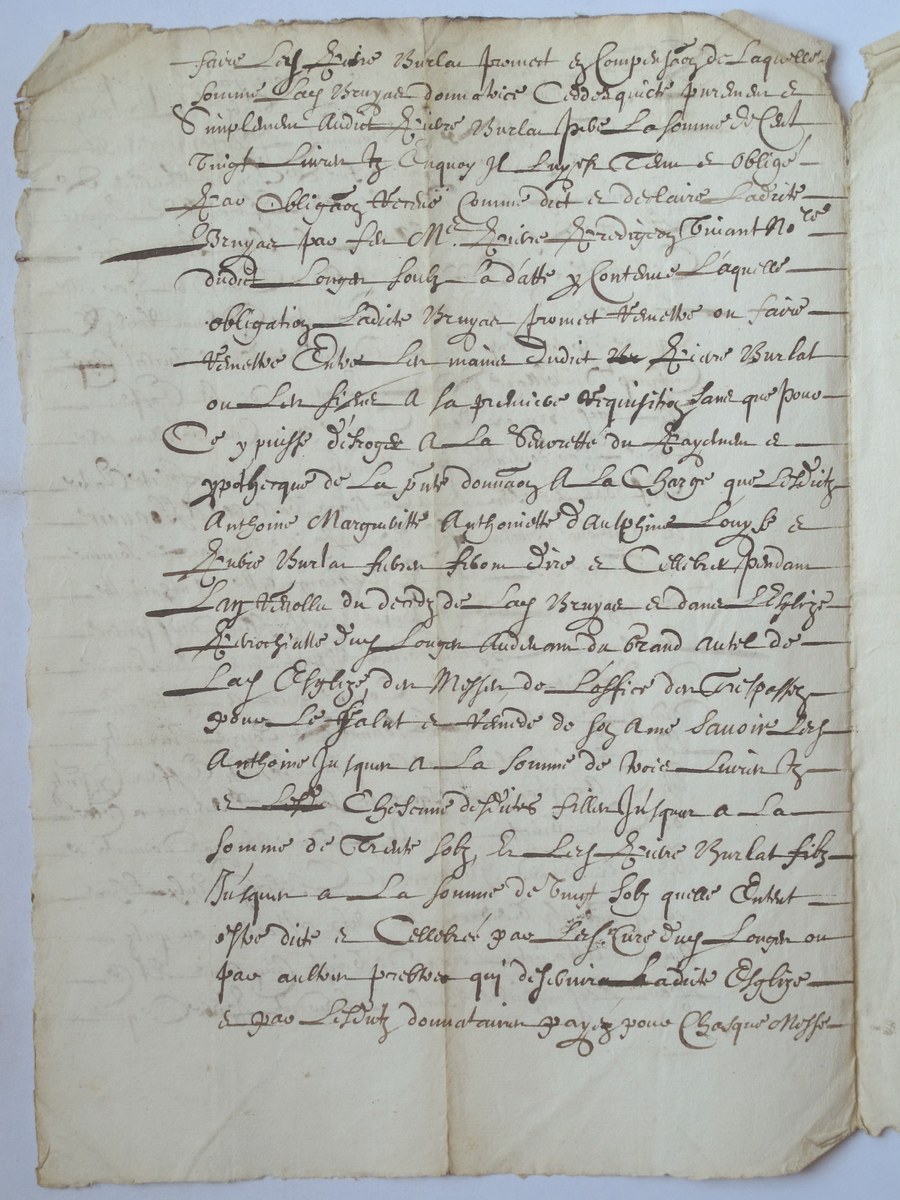 faire led Pierre Burlat promect en Compensaon de Laquelle
somme Lad Bruyas donnatrice Cedde quicte purement et
Simplement Audict Pierre Burlat La somme de Cent
Vingt Livres tz Enquoy Il Luy est Tenu et Obligé
Par Obligaon Receue Comme dict et declaire Ladicte
Bruyas par feu Me Pierre Vivant Nore
dudict Longes soubz La datte y Contenue Laquelle
obligation Ladicte Bruyas promect Remettre ou faire
Remettre Entre Les mains dudict Pierre Burlat
ou Les siens A sa premiere Requisition sans que pour
Ce y puisse desroger A La Seurette du Payement et
ypothecque de La pnte donnaon A La Charge que Lesdictz
Anthoine Marguritte Anthoinette daulphine Louyse et
Pierre Burlat feront dire et Cellebrer pendant
Lan du decedz de Lad Bruyas et dans LEsglize
Parrochialle dud Longes Audevant du Grand Autel de
Lad Esglize, des Messes de Loffice des Trespassez
pour Le Salut et Remede de son Ame Savoir Led
Anthoine Jusques A La somme de trois Livres tz
et Chescune desdites filles Jusques a La
somme de Trente solz, Et Led Pierre Burlat filz
Jusques a La somme de Vingt solz quelle Entent
estre dicte et Cellebrée par Led Sr Cure dud Longes ou
par aultres prebtres qui deservira Ladicte Esglize
et par Lesdictz donnataires payez pour Chasque Messe